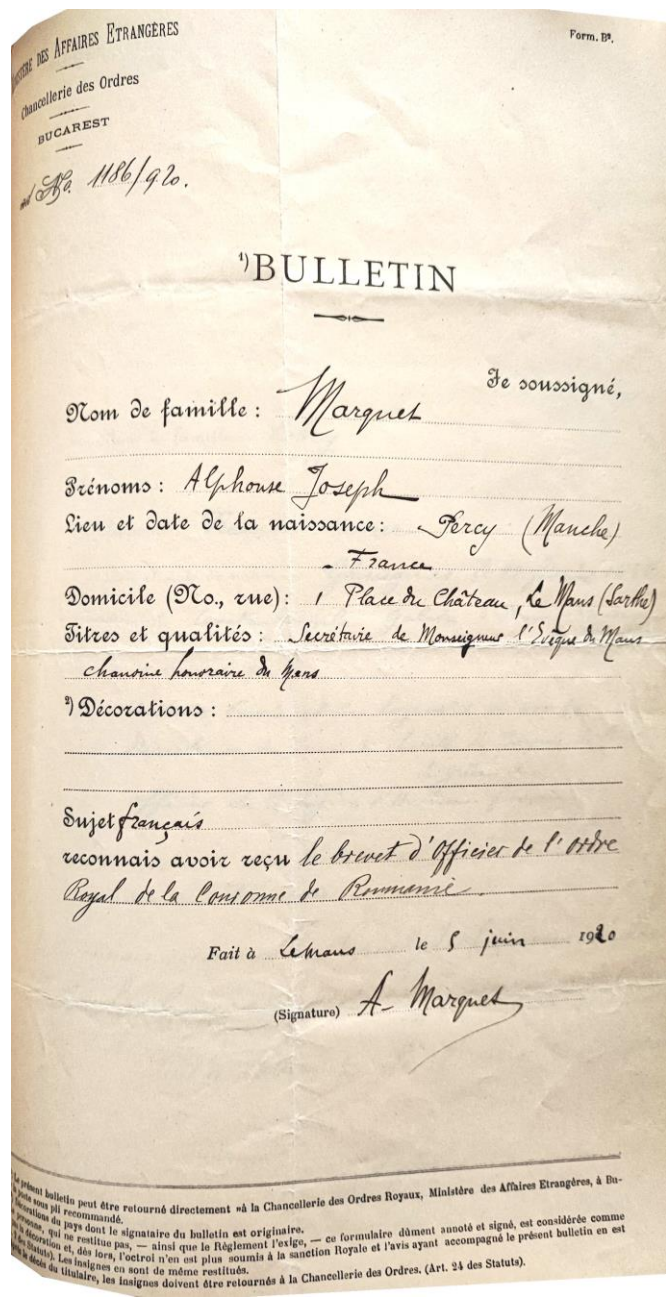 MINISTÈRE DES AFFAIRES ETRANGÈRES
Chancellerie des Ordres
BUCAREST
No. 1186/920.
Form. B².
¹)BULLETIN
Je soussigné,
Nom de famille : Marquet
Prénoms : Alphonse Joseph
Lieu et date de la naissance : Percy (Manche)
- France
Domicile (No., rue) : 1 Place du Château, Le Mans (Sarthe)
Titres et qualités : Secrétaire de Monseigneur l'Evêque du Mans
chanoine honoraire du Mans
²) Décorations :
Sujet français
reconnais avoir reçu le brevet d'Officier de l'ordre
Royal de la Couronne de Roumanie.
Fait à Le Mans le 5 juin 1920
(Signature) A. Marquet
présent bulletin peut être retourné directement »à la Chancellerie des Ordres Royaux, Ministère des Affaires Etrangères, à Bu-
poste sous pli recommandé.
Décorations du pays dont le signataire du bulletin est originaire.
personne, qui ne restitue pas, — ainsi que le Règlement l'exige, — ce formulaire dûment annoté et signé, est considérée comme
décoration et, dès lors, l'octroi n'en est plus soumis à la sanction Royale et l'avis ayant accompagné le présent bulletin en est
des Statuts). Les insignes en sont de même restitués.
le décès du titulaire, les insignes doivent être retournés à la Chancellerie des Ordres. (Art. 24 des Statuts).